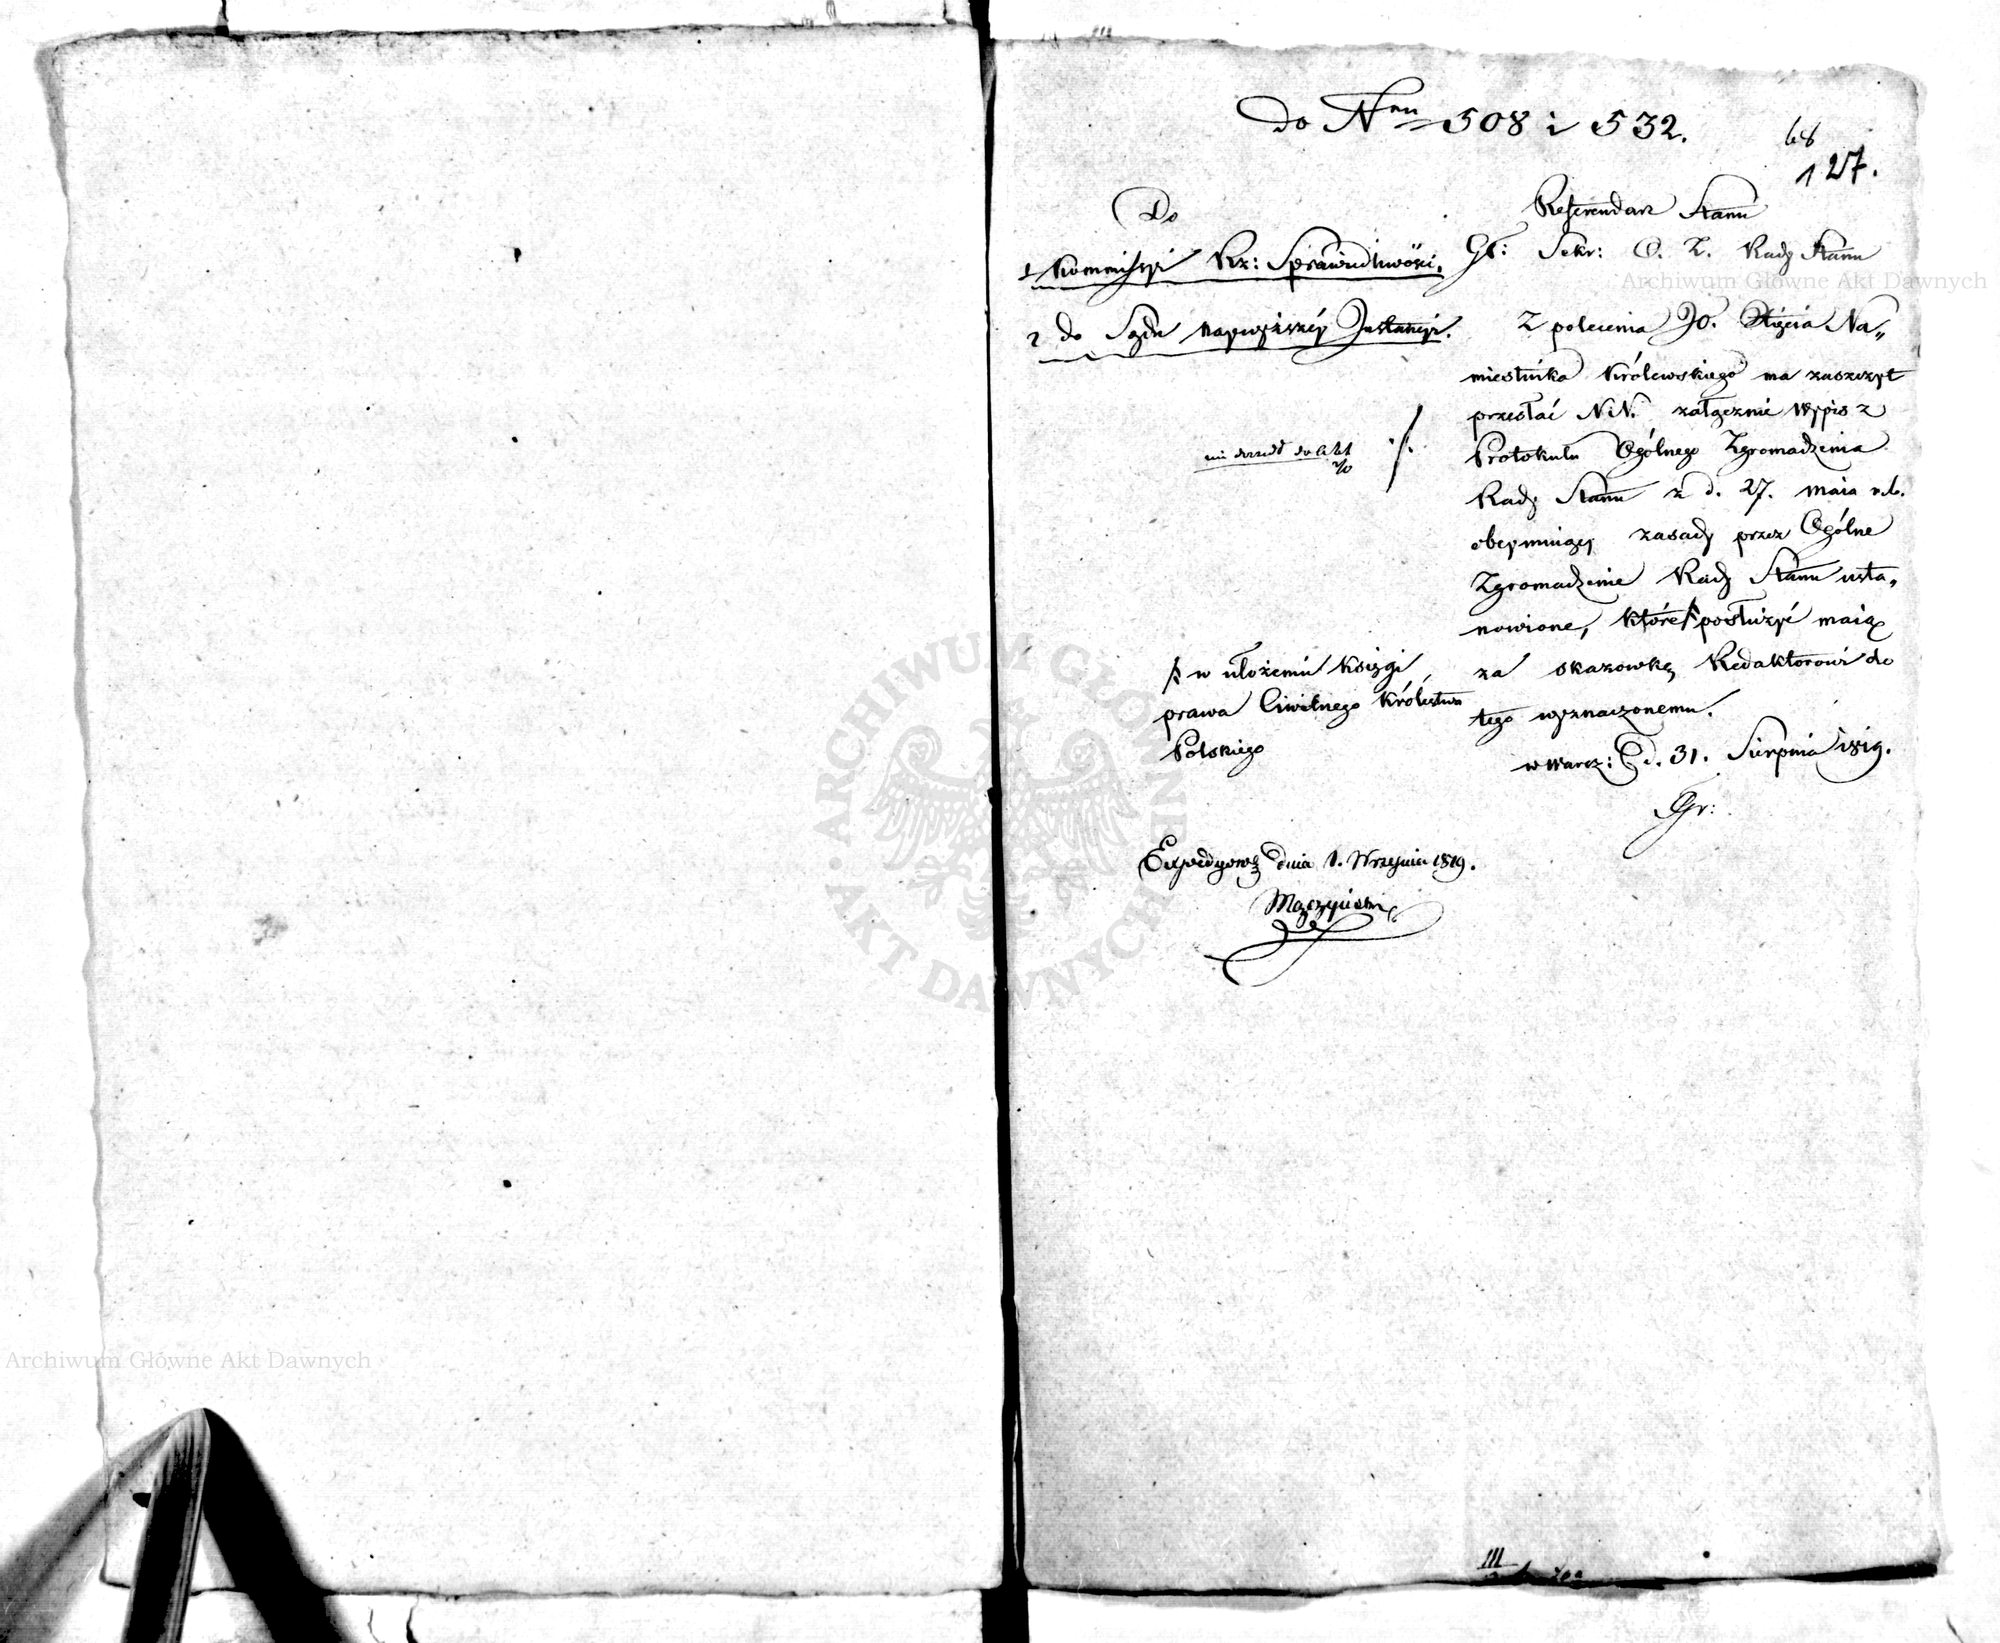 do Nru 508 i 532.
68
127.
Do
1 Kommissyi Rz: Sprawiedliwości.
2 do Sądu Naywyższéy Instancyi.
Referendarz Stanu
Gł: Sekr: O. Z. Rady Stanu
Z polecenia JO. Xięcia Na„
miestnika Królewskiego ma zaszczyt
przesłać NN. załącznie wypis z
Protokułu Ogólnego Zgromadzenia
Rady Stanu z d. 27. Maia r.b.
obeymuiący zasady przez Ogólne
Zgromadzenie Rady Stanu usta„
nowione, które posłużyć maią
za skazówkę Redaktorowi do
tego wyznaczonemu.
w Warsz: d. 31. Sierpnia 1819.
Gr:
do Akt
w ułożeniu Księgi
prawa Ciwilnego Królestwa
Polskiego
Expedyow dnia 1. Września 1819.
Mączyński
III
Archiwum Główne Akt Dawnych
Archiwum Główne Akt Dawnych
ARCHIWUM GŁÓWNE AKT DAWNYCH